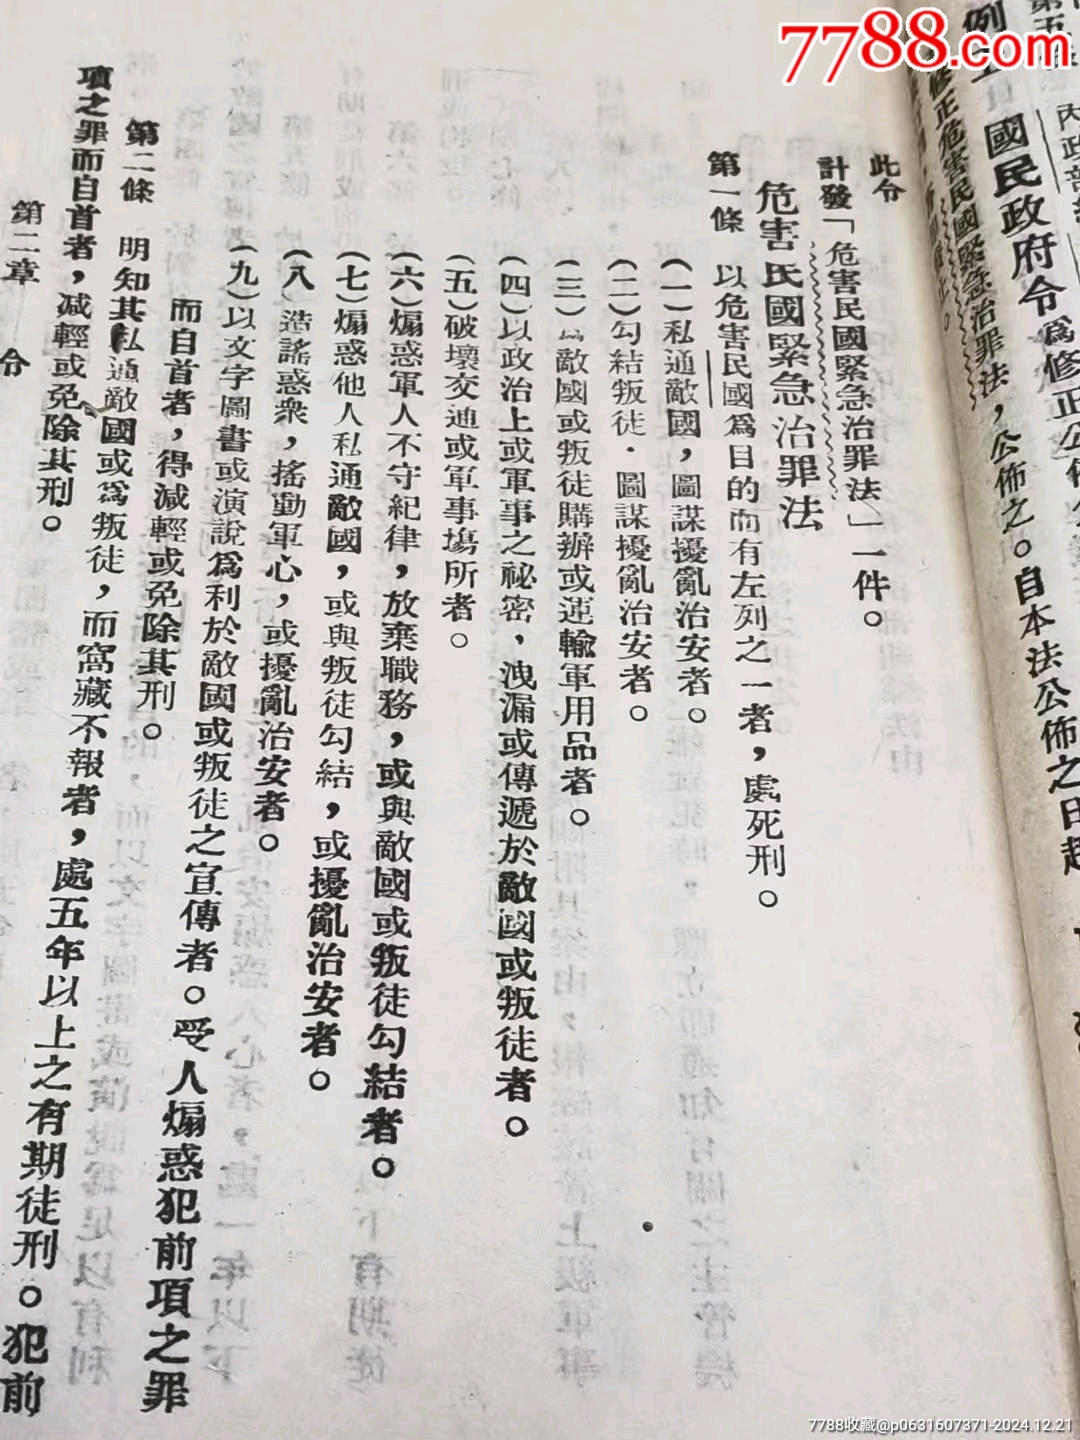 7788.com
國民政府令 為修正公佈
修正危害民國緊急治罪法，公佈之。自本法公佈之日起
此令
計發「危害民國緊急治罪法」一件。
危害民國緊急治罪法
第一條 以危害民國為目的而有左列之一者，處死刑。
(一)私通敵國，圖謀擾亂治安者。
(二)勾結叛徒．圖謀擾亂治安者。
(三)為敵國或叛徒購辦或運輸軍用品者。
(四)以政治上或軍事之祕密，洩漏或傳遞於敵國或叛徒者。
(五)破壞交通或軍事塲所者。
(六)煽惑軍人不守紀律，放棄職務，或與敵國或叛徒勾結者。
(七)煽惑他人私通敵國，或與叛徒勾結，或擾亂治安者。
(八)造謠惑衆，搖動軍心，或擾亂治安者。
(九)以文字圖書或演說為利於敵國或叛徒之宣傳者。受人煽惑犯前項之罪
而自首者，得減輕或免除其刑。
第二條 明知其私通敵國或為叛徒，而窩藏不報者，處五年以上之有期徒刑。犯前
項之罪而自首者，減輕或免除其刑。
第二章 令
7788收藏@p0631607371-2024.12.21